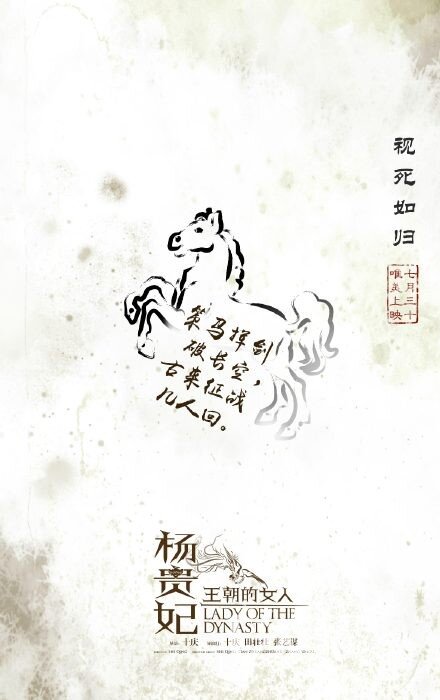 视死如归
七月三十
唯美上映
策马挥剑
破长空，
古来征战
几人回。
杨贵妃
王朝的女人
LADY OF THE
DYNASTY
十庆 田壮壮 张艺谋